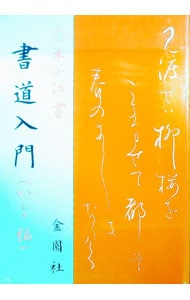 見渡せば柳桜を
こきまぜて都そ
春のにしき
なりける
書道入門
(かな編)
金園社